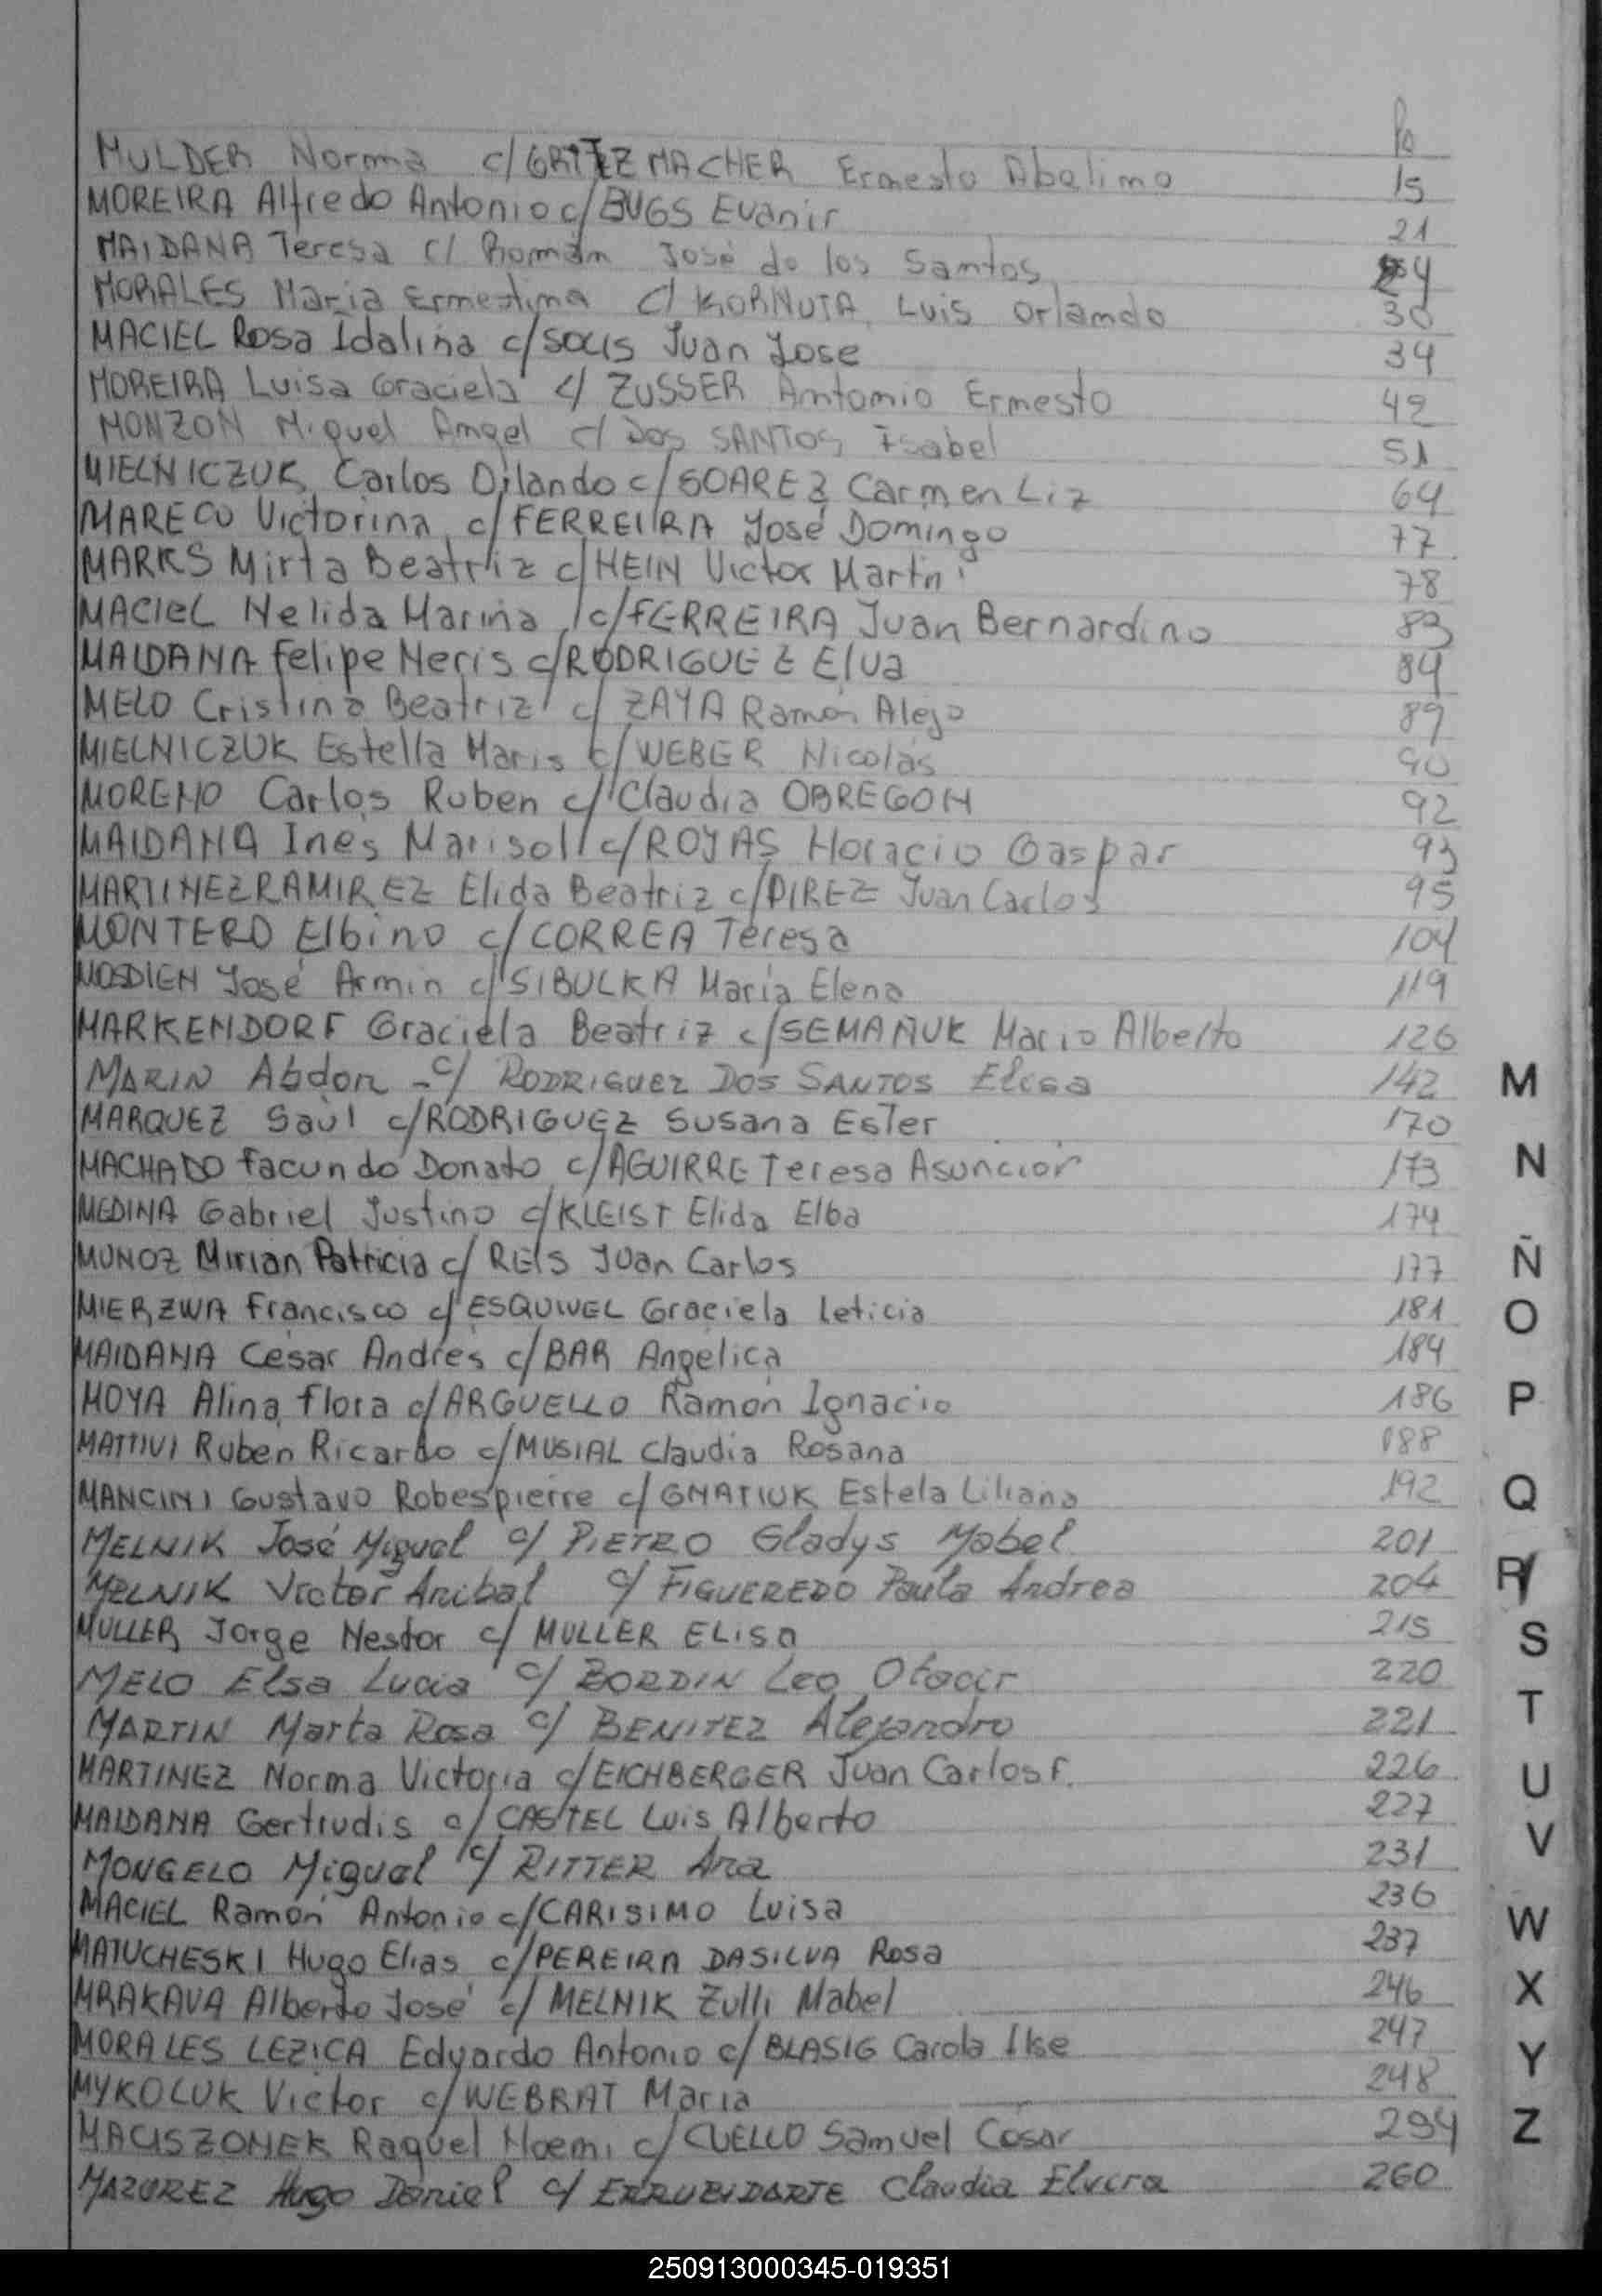 Pg
MULDER Norma c/GRITZMACHER Ernesto Abelimo 15
MOREIRA Alfredo Antonio c/BUGS Evanir 21
MAIDANA Teresa c/ Román José de los Santos
MORALES Maria Ernestina c/ KORNUTA Luis Orlando 30
MACIEL Rosa Idalina c/SOLIS Juan Jose 34
MOREIRA Luisa Graciela c/ ZUSSER Antonio Ernesto 42
MONZON Miguel Angel c/ Dos SANTOS Isabel 51
MIELNICZUK Carlos Orlando c/SOAREZ Carmen Liz 64
MARECO Victorina c/FERREIRA José Domingo 77
MARKS Mirta Beatriz c/HEIN Victor Martin 78
MACIEL Nelida Marina c/FERREIRA Juan Bernardino 83
MAIDANA Felipe Neris c/RODRIGUEZ Elva 84
MELO Cristina Beatriz c/ ZAYA Ramón Alejo 89
MIELNICZUK Estella Maris c/WEBER Nicolás 90
MORENO Carlos Ruben c/Claudia OBREGON 92
MAIDANA Inés Marisol c/ROJAS Horacio Gaspar 93
MARTINEZ RAMIREZ Elida Beatriz c/PIREZ Juan Carlos 95
MONTERO Elbino c/CORREA Teresa 104
MOSDIEN José Armin c/SIBULKA María Elena 119
MARKENDORF Graciela Beatriz c/SEMAÑUK Mario Alberto 126
MARIN Abdon - c/ RODRIGUEZ DOS SANTOS Elisa 142
MARQUEZ Saúl c/RODRIGUEZ Susana Ester 170
MACHADO Facundo Donato c/AGUIRRE Teresa Asuncion 173
MEDINA Gabriel Justino c/KLEIST Elida Elba 174
MUNOZ Mirian Patricia c/ REIS Juan Carlos 177
MIERZWA Francisco c/ESQUIVEL Graciela Leticia 181
MAIDANA Cesar Andrés c/BAR Angelica 184
MOYA Alina Flora c/ARGUELLO Ramón Ignacio 186
MATTIVI Ruben Ricardo c/MUSIAL Claudia Rosana 188
MANCINI Gustavo Robespierre c/GNATIUK Estela Liliana 192
MELNIK José Miguel c/ PIETRO Gladys Mabel 201
MELNIK Victor Anibal c/ FIGUEREDO Paula Andrea 204
MULLER Jorge Nestor c/ MULLER ELISA 215
MELO Elsa Lucia c/ BORDIN Leo Otacir 220
MARTIN Marta Rosa c/ BENITEZ Alejandro 221
MARTINEZ Norma Victoria c/EICHBERGER Juan Carlos F. 226
MAIDANA Gertrudis c/ CASTEL Luis Alberto 227
MONGELO Miguel c/ RITTER Ana 231
MACIEL Ramón Antonio c/CARISIMO Luisa 236
MATUCHESKI Hugo Elias c/PEREIRA DASILVA Rosa 237
MRAKAVA Alberto José c/ MELNIK Zulli Mabel 246
MORALES LEZICA Eduardo Antonio c/ BLASIG Carola Ilse 247
MYKOLUK Victor c/WEBRAT Maria 248
MACISZONEK Raquel Noemi c/ CUELLO Samuel Cesar 254
MAZUREZ Hugo Daniel c/ ERRUBIDARTE Claudia Elvira 260
M
N
Ñ
O
P
Q
R
S
T
U
V
W
X
Y
Z
250913000345-019351